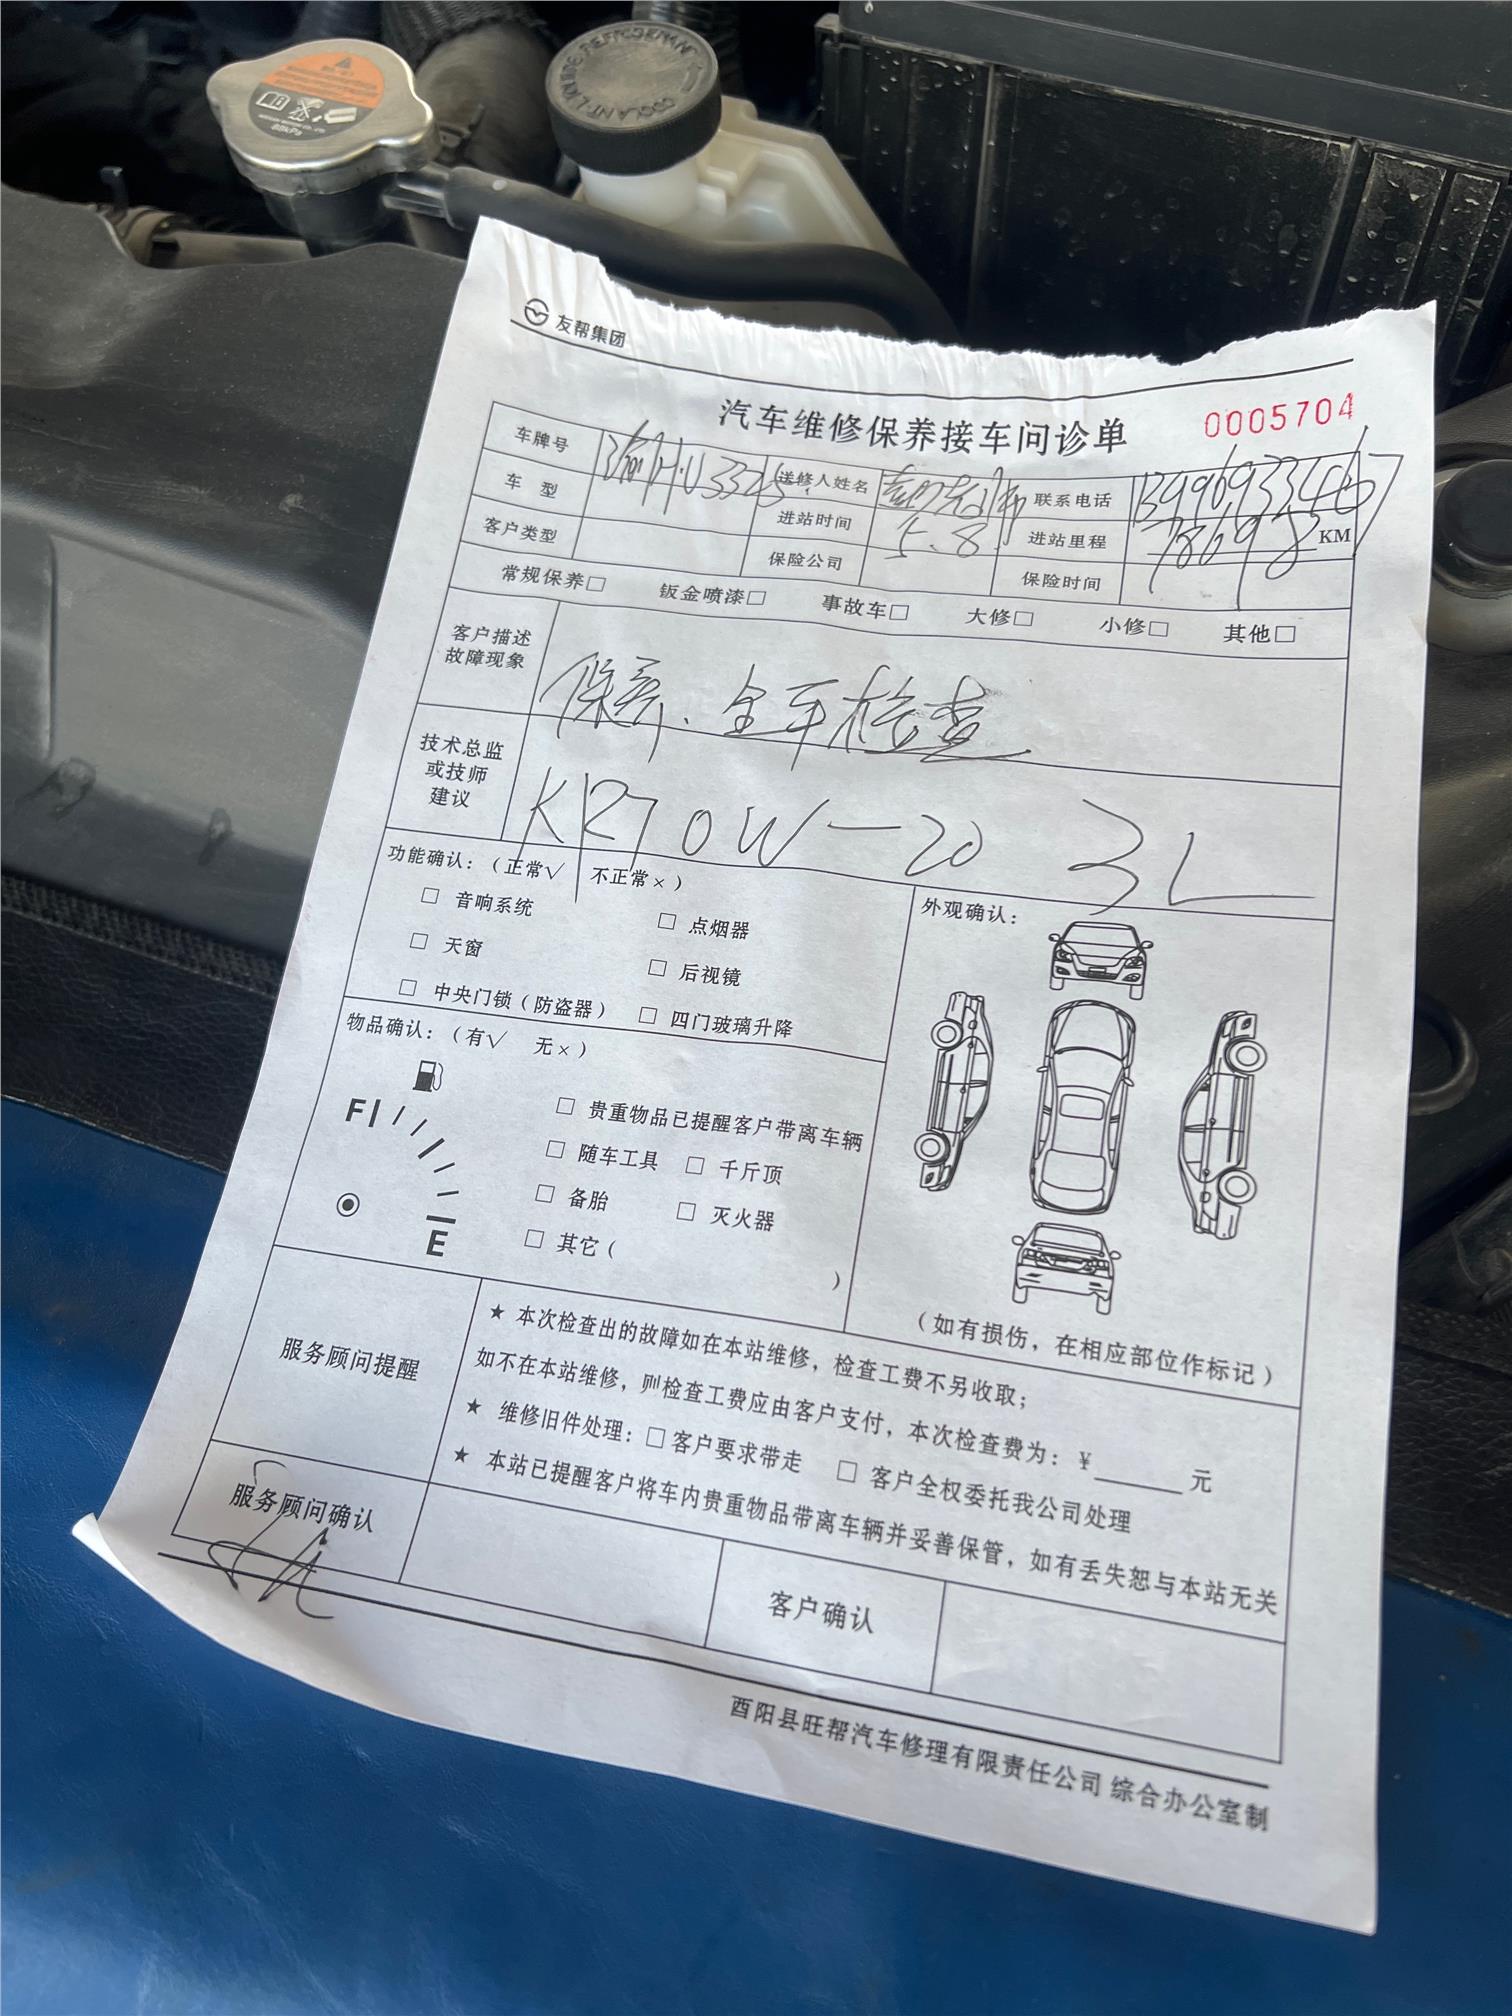 COOLANT-LIQUIDE DE REFROIDISSEMENT
友帮集团
汽车维修保养接车问诊单 0005704
车牌号 渝H·U3325 送修人姓名 联系电话
车 型 进站时间 5.8 进站里程 78698 KM
客户类型 保险公司 保险时间
常规保养□ 钣金喷漆□ 事故车□ 大修□ 小修□ 其他□
客户描述
故障现象
保养、全车检查
技术总监
或技师
建议
KR7 0W-20 3L
功能确认：（正常√ 不正常×）
□ 音响系统 □ 点烟器
□ 天窗 □ 后视镜
□ 中央门锁（防盗器） □ 四门玻璃升降
外观确认：
（如有损伤，在相应部位作标记）
物品确认：（有√ 无×）
F
E
□ 贵重物品已提醒客户带离车辆
□ 随车工具 □ 千斤顶
□ 备胎 □ 灭火器
□ 其它（ ）
服务顾问提醒
★ 本次检查出的故障如在本站维修，检查工费不另收取；
如不在本站维修，则检查工费应由客户支付，本次检查费为：¥______元
★ 维修旧件处理：□客户要求带走 □ 客户全权委托我公司处理
★ 本站已提醒客户将车内贵重物品带离车辆并妥善保管，如有丢失恕与本站无关
服务顾问确认 客户确认
酉阳县旺帮汽车修理有限责任公司 综合办公室制